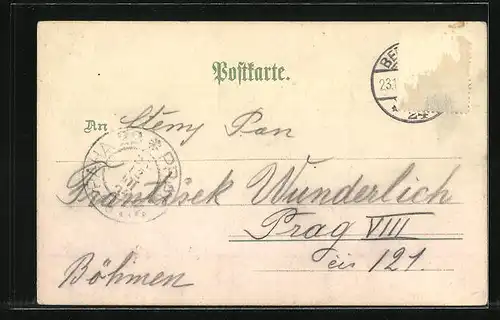 Postkarte.
An Ctěný Pan
František Wunderlich
Prag VIII
čis 121.
Böhmen